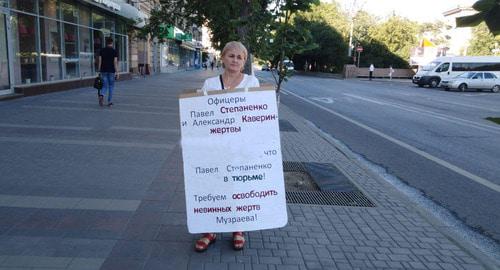 Офицеры
Павел Степаненко
и Александр Каверин-
жертвы
что
Павел Степаненко
в тюрьме!
Требуем освободить
невинных жертв
Музраева!